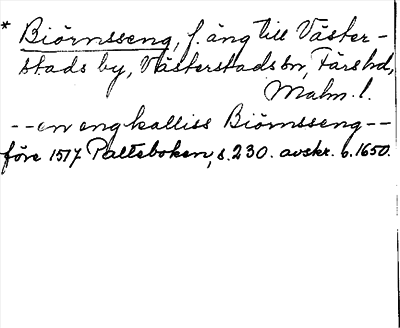 * Biörnsseng, f. äng till Väster-
stads by, Västerstads sn, Färs hd,
Malm. l.
-- en eng kalliss Biörnsseng --
före 1517 Palteboken, s. 230. avskr. o. 1650.